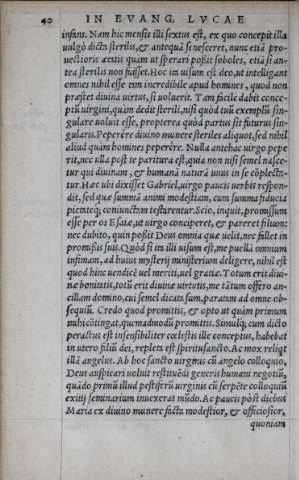 40 IN EVANG. LVCAE
infans. Nam hic mensis illi sextus est, ex quo concepit illa
uulgò dicta sterilis, & antequã senesceret, nunc etiã pro-
uectioris ætatis quàm ut sperari possit soboles, etiã si an-
tea sterilis non fuisset. Hoc ita uisum est deo, ut intelligant
omnes nihil esse tam incredibile apud homines, quod non
præstet diuina uirtus, si uoluerit. Tam facile dabit conce-
ptũ uirgini, quàm dedit sterili, nisi quòd tuũ exemplũ sin-
gulare uoluit esse, propterea quòd partus sit futurus sin-
gularis. Peperêre diuino munere steriles aliquot, sed nihil
aliud quàm homines peperêre. Nulla antehac uirgo pepe
rit, nec ulla post te paritura est, quia non nisi semel nasce-
tur qui diuinam, & humanã naturã unus in se cõplecta-
tur. Hæc ubi dixisset Gabriel, uirgo paucis uerbis respon-
dit, sed quæ summã animi modestiam, cum summa fiducia
pietateq́; coniunctam testarentur. Scio, inquit, promissum
esse per os Esaiæ, ut uirgo conciperet, & pareret filium:
nec dubito, quin possit Deus omnia quæ uelit, nec fallet in
promissis suis. Quòd si ita illi uisum est, me puellã omnium
infimam, ad huius mysterij ministerium deligere, nihil est
quod hinc uendicẽ uel meriti, uel gratiæ. Totum erit diui-
næ bonitatis, totũ erit diuinæ uirtutis, me tãtum offero an-
cillam domino, cui semel dicata sum, paratam ad omne ob-
sequiũ. Credo quod promittis, & opto ut quàm primum
mihi cõtingat, quemadmodũ promittis. Simulq́; cum dicto
peractus est insensibiliter cœlestis ille conceptus, habebat
in utero filiũ dei, repleta est spiritusancto. Ac mox reliqt
illã angelus. Ab hoc sancto uirginis cũ angelo colloquio,
Deus auspicari uoluit restituẽdi generis humani negotiũ,
quãdo primũ illud pestiferũ uirginis cũ serpẽte colloquiũ
exitij seminarium inuexerat mũdo. Ac paucis pòst diebus
Maria ex diuino munere facta modestior, & officiosior,
quoniam